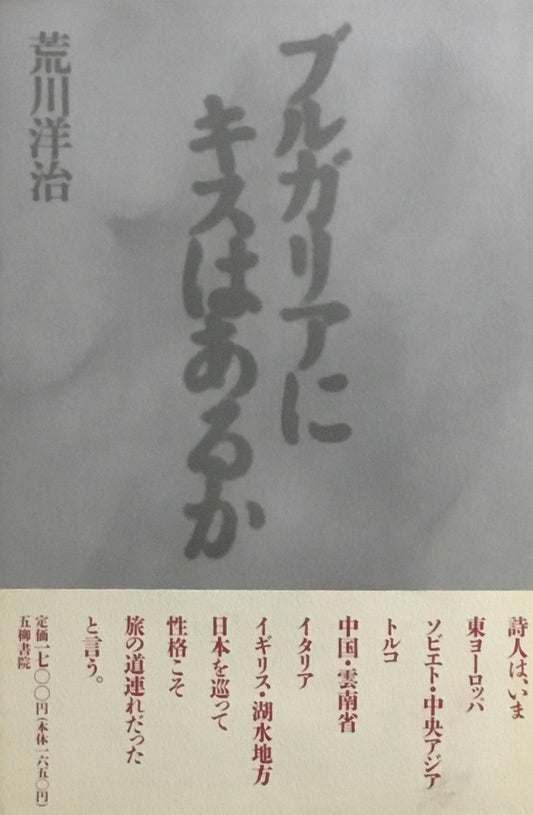 ブルガリアに
キスはあるか
荒川洋治
詩人は、いま
東ヨーロッパ
ソビエト・中央アジア
トルコ
中国・雲南省
イタリア
イギリス・湖水地方
日本を巡って
性格こそ
旅の道連れだった
と言う。
定価一七〇〇円(本体一六五〇円)
五柳書院